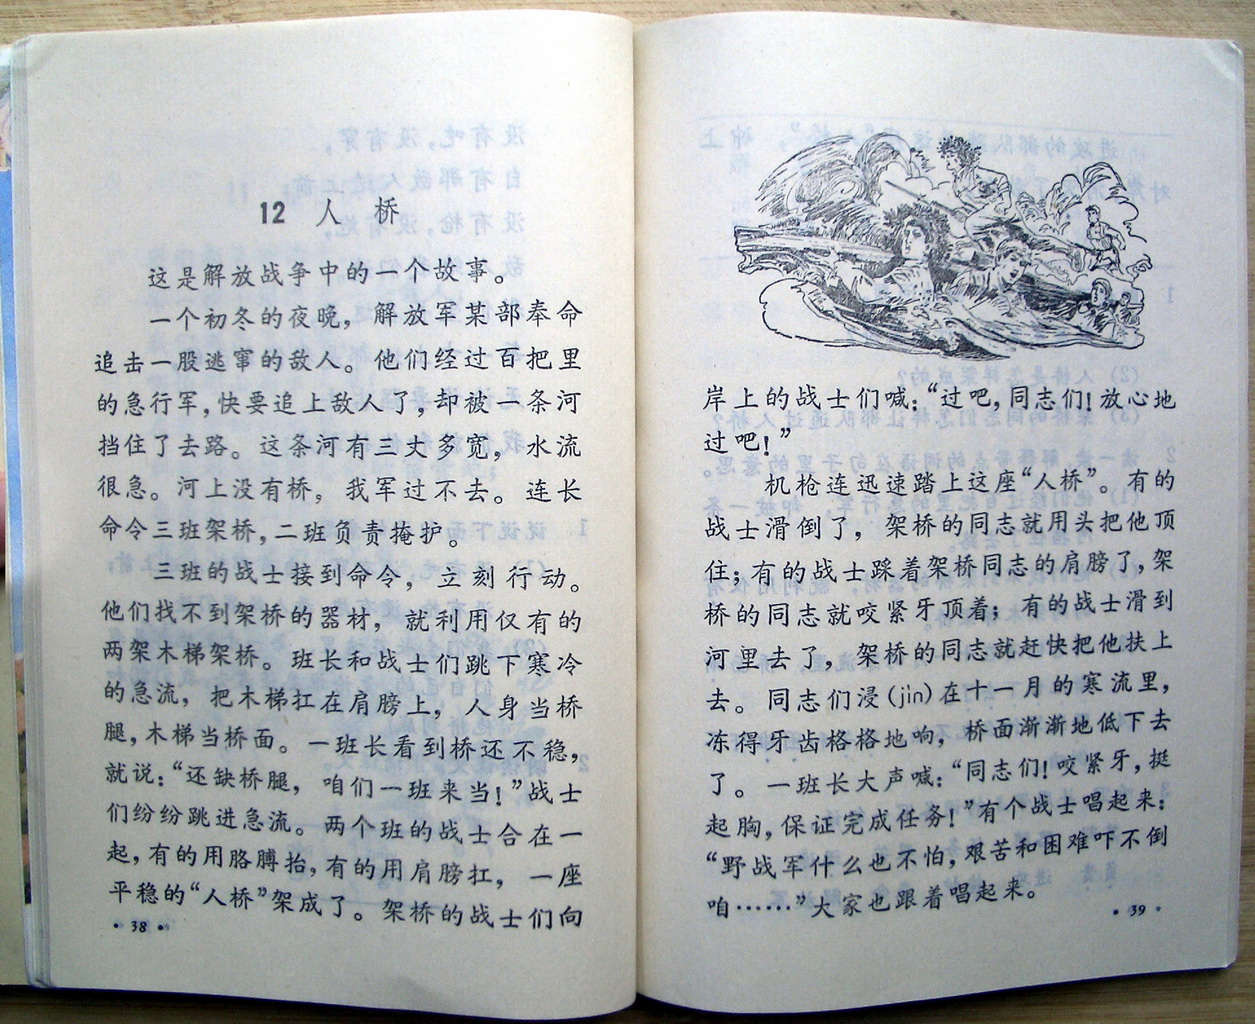 12 人 桥
这是解放战争中的一个故事。
一个初冬的夜晚，解放军某部奉命
追击一股逃窜的敌人。他们经过百把里
的急行军，快要追上敌人了，却被一条河
挡住了去路。这条河有三丈多宽，水流
很急。河上没有桥，我军过不去。连长
命令三班架桥，二班负责掩护。
三班的战士接到命令，立刻行动。
他们找不到架桥的器材，就利用仅有的
两架木梯架桥。班长和战士们跳下寒冷
的急流，把木梯扛在肩膀上，人身当桥
腿，木梯当桥面。一班长看到桥还不稳，
就说：“还缺桥腿，咱们一班来当！”战士
们纷纷跳进急流。两个班的战士合在一
起，有的用胳膊抬，有的用肩膀扛，一座
平稳的“人桥”架成了。架桥的战士们向
· 38 ·
岸上的战士们喊：“过吧，同志们！放心地
过吧！”
机枪连迅速踏上这座“人桥”。有的
战士滑倒了，架桥的同志就用头把他顶
住；有的战士踩着架桥同志的肩膀了，架
桥的同志就咬紧牙顶着；有的战士滑到
河里去了，架桥的同志就赶快把他扶上
去。同志们浸(jìn)在十一月的寒流里，
冻得牙齿格格地响，桥面渐渐地低下去
了。一班长大声喊：“同志们！咬紧牙，挺
起胸，保证完成任务！”有个战士唱起来：
“野战军什么也不怕，艰苦和困难吓不倒
咱……”大家也跟着唱起来。
· 39 ·